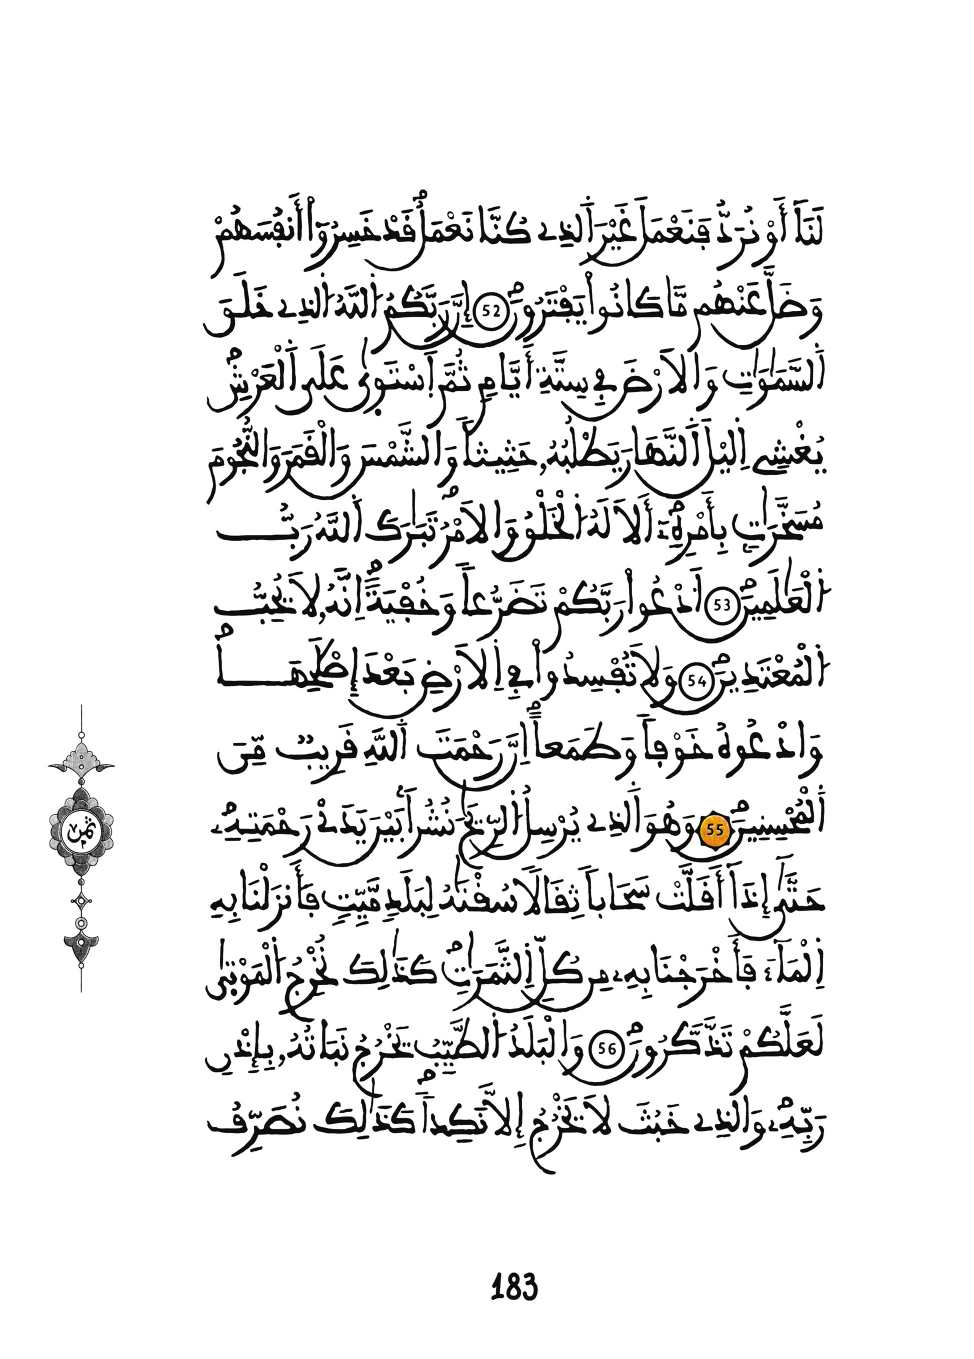 لَنَا أَوْ نُرَدُّ فَنَعْمَلَ غَيْرَ اَ۬لذِے كُنَّا نَعْمَلُۖ قَدْ خَسِرُوٓاْ أَنفُسَهُمْ
وَضَلَّ عَنْهُم مَّا كَانُواْ يَفْتَرُونَۖ 52 إِنَّ رَبَّكُمُ اُ۬للَّهُ اُ۬لذِے خَلَقَ
اَ۬لسَّمَٰوَٰتِ وَالَارْضَ فِے سِتَّةِ أَيَّامٖ ثُمَّ اَ۪سْتَو۪يٰ عَلَي اَ۬لْعَرْشِۖ
يُغْشِے اِ۬ليْلَ اَ۬لنَّهَارَ يَطْلُبُهُۥ حَثِيثاٗ وَالشَّمْسَ وَالْقَمَرَ وَالنُّجُومَ
مُسَخَّرَٰتِۢ بِأَمْرِهِۦٓۖ أَلَا لَهُ اُ۬لْخَلْقُ وَالَامْرُۖ تَبَٰرَكَ اَ۬للَّهُ رَبُّ
اُ۬لْعَٰلَمِينَۖ 53 اَ۟دْعُواْ رَبَّكُمْ تَضَرُّعاٗ وَخُفْيَةًۖ اِنَّهُۥ لَا يُحِبُّ
اُ۬لْمُعْتَدِينَۖ 54 وَلَا تُفْسِدُواْ فِے اِ۬لَارْضِ بَعْدَ إِصْلَٰحِهَاۖ
وَادْعُوهُ خَوْفاٗ وَطَمَعاًۖ اِنَّ رَحْمَتَ اَ۬للَّهِ قَرِيبٞ مِّنَ
اَ۬لْمُحْسِنِينَۖ 55 وَهُوَ اَ۬لذِے يُرْسِلُ اُ۬لرِّيَٰحَ نُشُراَۢ بَيْنَ يَدَےْ رَحْمَتِهِۦ
حَتَّيٰٓ إِذَآ أَقَلَّتْ سَحَاباٗ ثِقَالاٗ سُقْنَٰهُ لِبَلَدٖ مَّيِّتٖ فَأَنزَلْنَا بِهِ
اِ۬لْمَآءَ فَأَخْرَجْنَا بِهِۦ مِن كُلِّ اِ۬لثَّمَرَٰتِۖ كَذَٰلِكَ نُخْرِجُ اُ۬لْمَوْت۪يٰ
لَعَلَّكُمْ تَذَّكَّرُونَۖ 56 وَالْبَلَدُ اُ۬لطَّيِّبُ يَخْرُجُ نَبَاتُهُۥ بِإِذْنِ
رَبِّهِۦۖ وَالذِے خَبُثَ لَا يَخْرُجُ إِلَّا نَكِداٗۖ كَذَٰلِكَ نُصَرِّفُ
ثمن
183